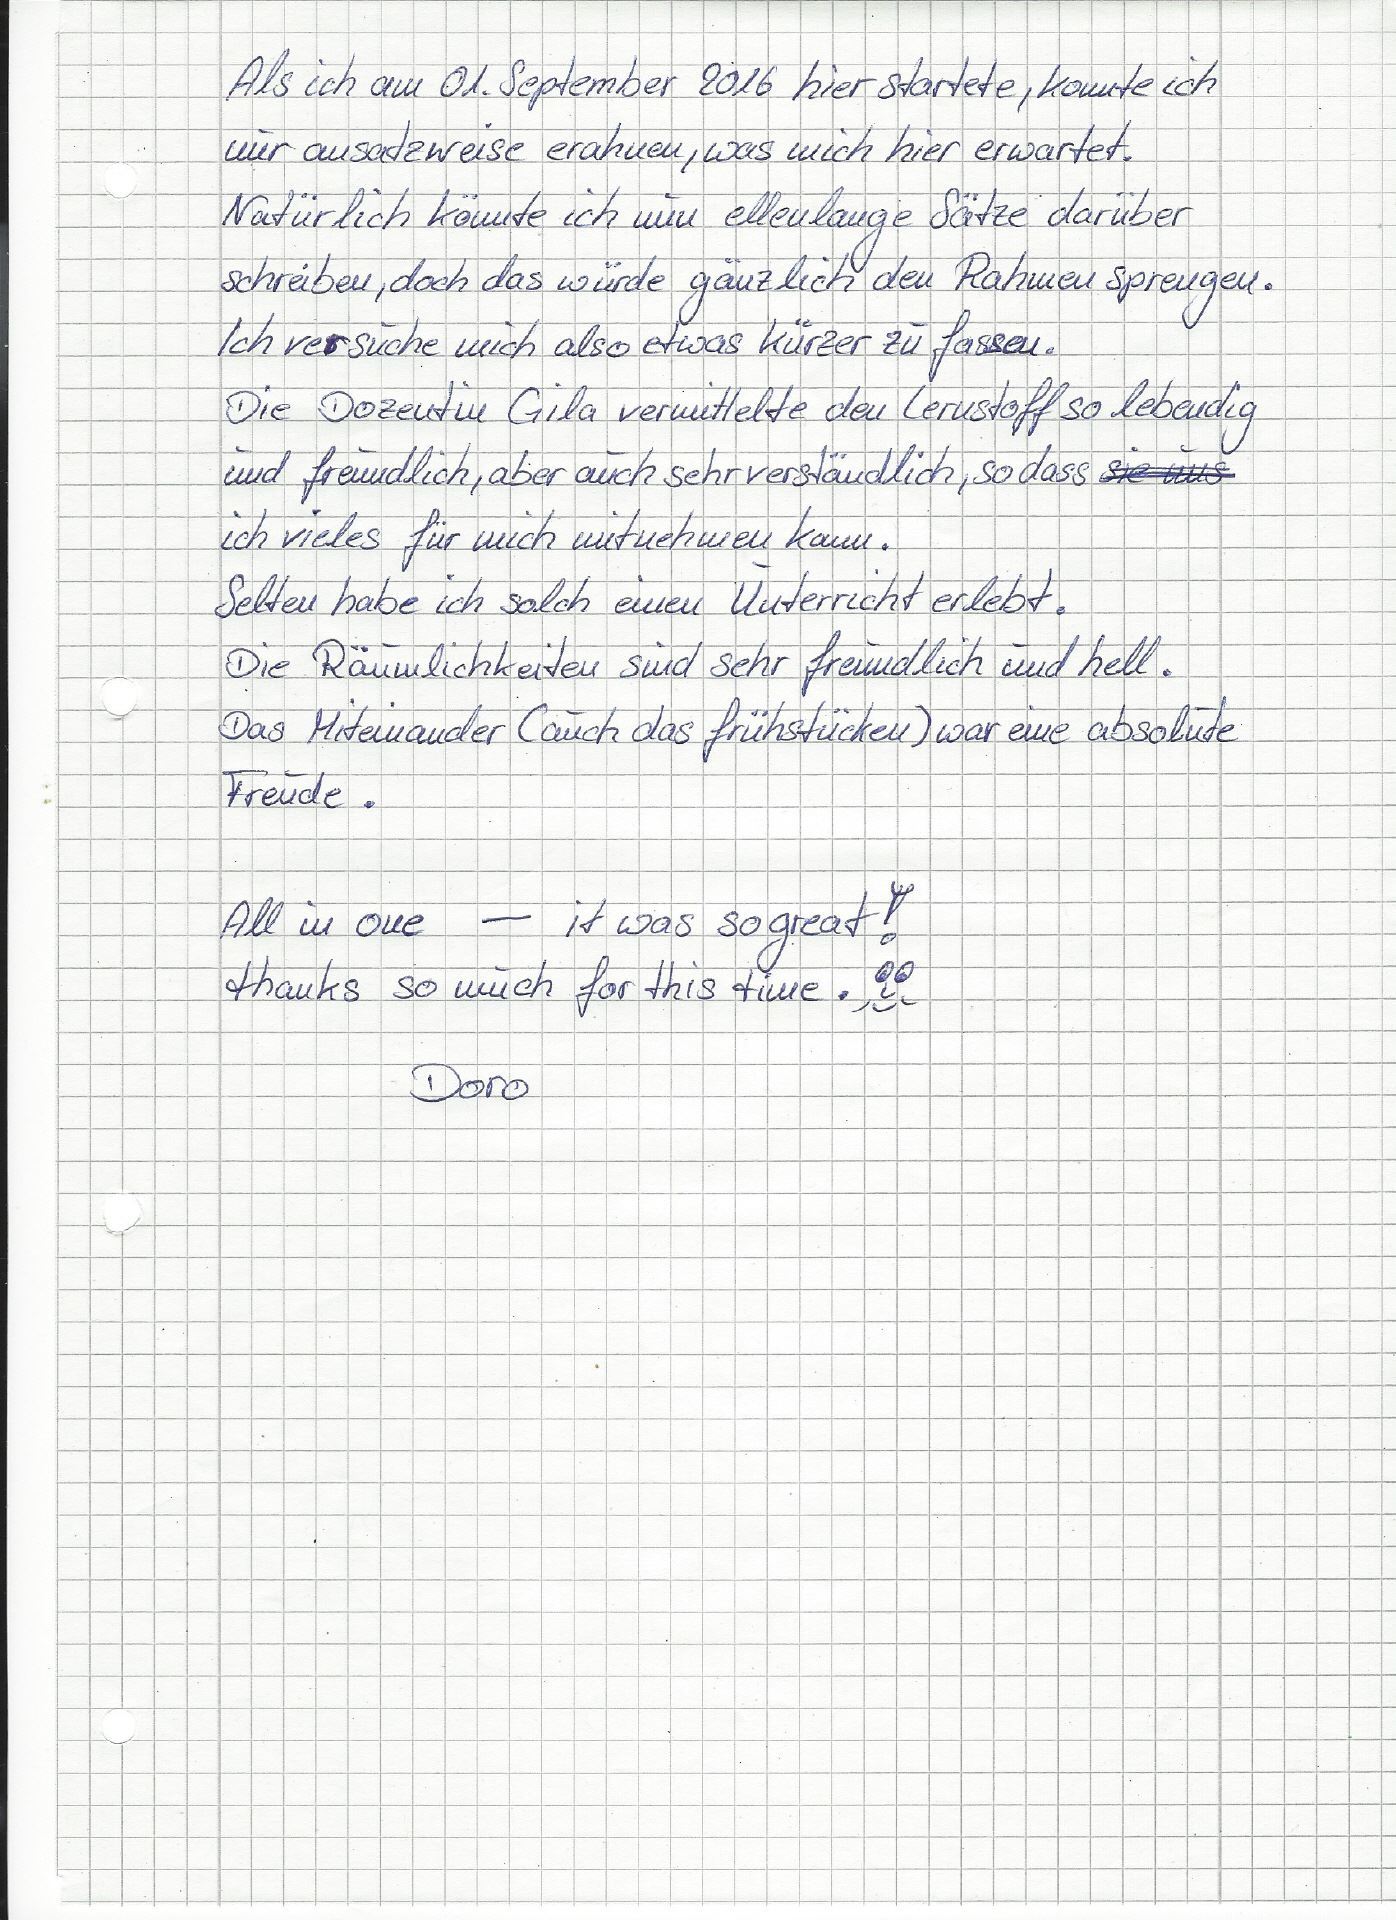 Als ich am 01. September 2016 hier startete, konnte ich
nur ansatzweise erahnen, was mich hier erwartet.
Natürlich könnte ich nun ellenlange Sätze darüber
schreiben, doch das würde gänzlich den Rahmen sprengen.
Ich versuche mich also etwas kürzer zu fassen.
Die Dozentin Gila vermittelte den Lernstoff so lebendig
und freundlich, aber auch sehr verständlich, so dass sie uns
ich vieles für mich mitnehmen kann.
Selten habe ich solch einen Unterricht erlebt.
Die Räumlichkeiten sind sehr freundlich und hell.
Das Miteinander (auch das frühstücken) war eine absolute
Freude.
All in one — it was so great!
thanks so much for this time.
Doro